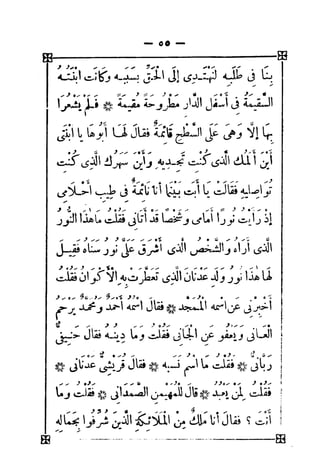 — ٥٥ —
بِنَا فِى طَلَبِهِ لِنَهْتَدِىَ إِلَى الْحَقِّ بِسَبَبِهِ وَكَانَتِ ابْنَتُهُ
السَّقِيمَةُ فِى أَسْفَلِ الدَّارِ مَطْرُوحَةً مُقِيمَةً ❊ فَلَمْ يَشْعُرَا
بِهَا إِلَّا وَهِىَ عَلَى السَّطْحِ قَائِمَةٌ فَقَالَ لَهَا أَبُوهَا يَا ابْنَتِى
أَيْنَ أَلَمُكِ الَّذِى كُنْتِ تَجِدِيهِ وَأَيْنَ سَهَرُكِ الَّذِى كُنْتِ
تُوَاصِلِيهِ فَقَالَتْ يَا أَبَتِ بَيْنَمَا أَنَا نَائِمَةٌ فِى طِيبِ أَحْلَامِى
إِذْ رَأَيْتُ نُورًا أَمَامِى وَشَخْصًا قَدْ أَتَانِى فَقُلْتُ مَا هٰذَا النُّورُ
الَّذِى أَرَاهُ وَالشَّخْصُ الَّذِى أَشْرَقَ عَلَىَّ نُورُ سَنَاهُ فَقِيلَ
لِى هٰذَا نُورُ وَلَدِ عَدْنَانَ الَّذِى تَعَطَّرَتْ بِهِ الْأَكْوَانُ فَقُلْتُ
أَخْبِرْنِى عَنِ اسْمِهِ الْمُمَجَّدِ ❊ فَقَالَ اسْمُهُ أَحْمَدُ وَمُحَمَّدٌ يَرْحَمُ
الْعَانِى وَيَعْفُو عَنِ الْجَانِى فَقُلْتُ وَمَا دِينُهُ فَقَالَ حَنِيفِىٌّ
رَبَّانِىٌّ ❊ فَقُلْتُ مَا اسْمُ نَسَبِهِ ❊ فَقَالَ قُرَيْشِىٌّ عَدْنَانِى ❊
فَقُلْتُ لِمَنْ يَعْبُدُ ❊ قَالَ لِلْمُهَيْمِنِ الصَّمَدَانِى ❊ فَقُلْتُ وَمَا
أَنْتَ ؟ فَقَالَ أَنَا مَلَكٌ مِنَ الْمَلَائِكَةِ الَّذِينَ شُرِّفُوا بِجَمَالِهِ